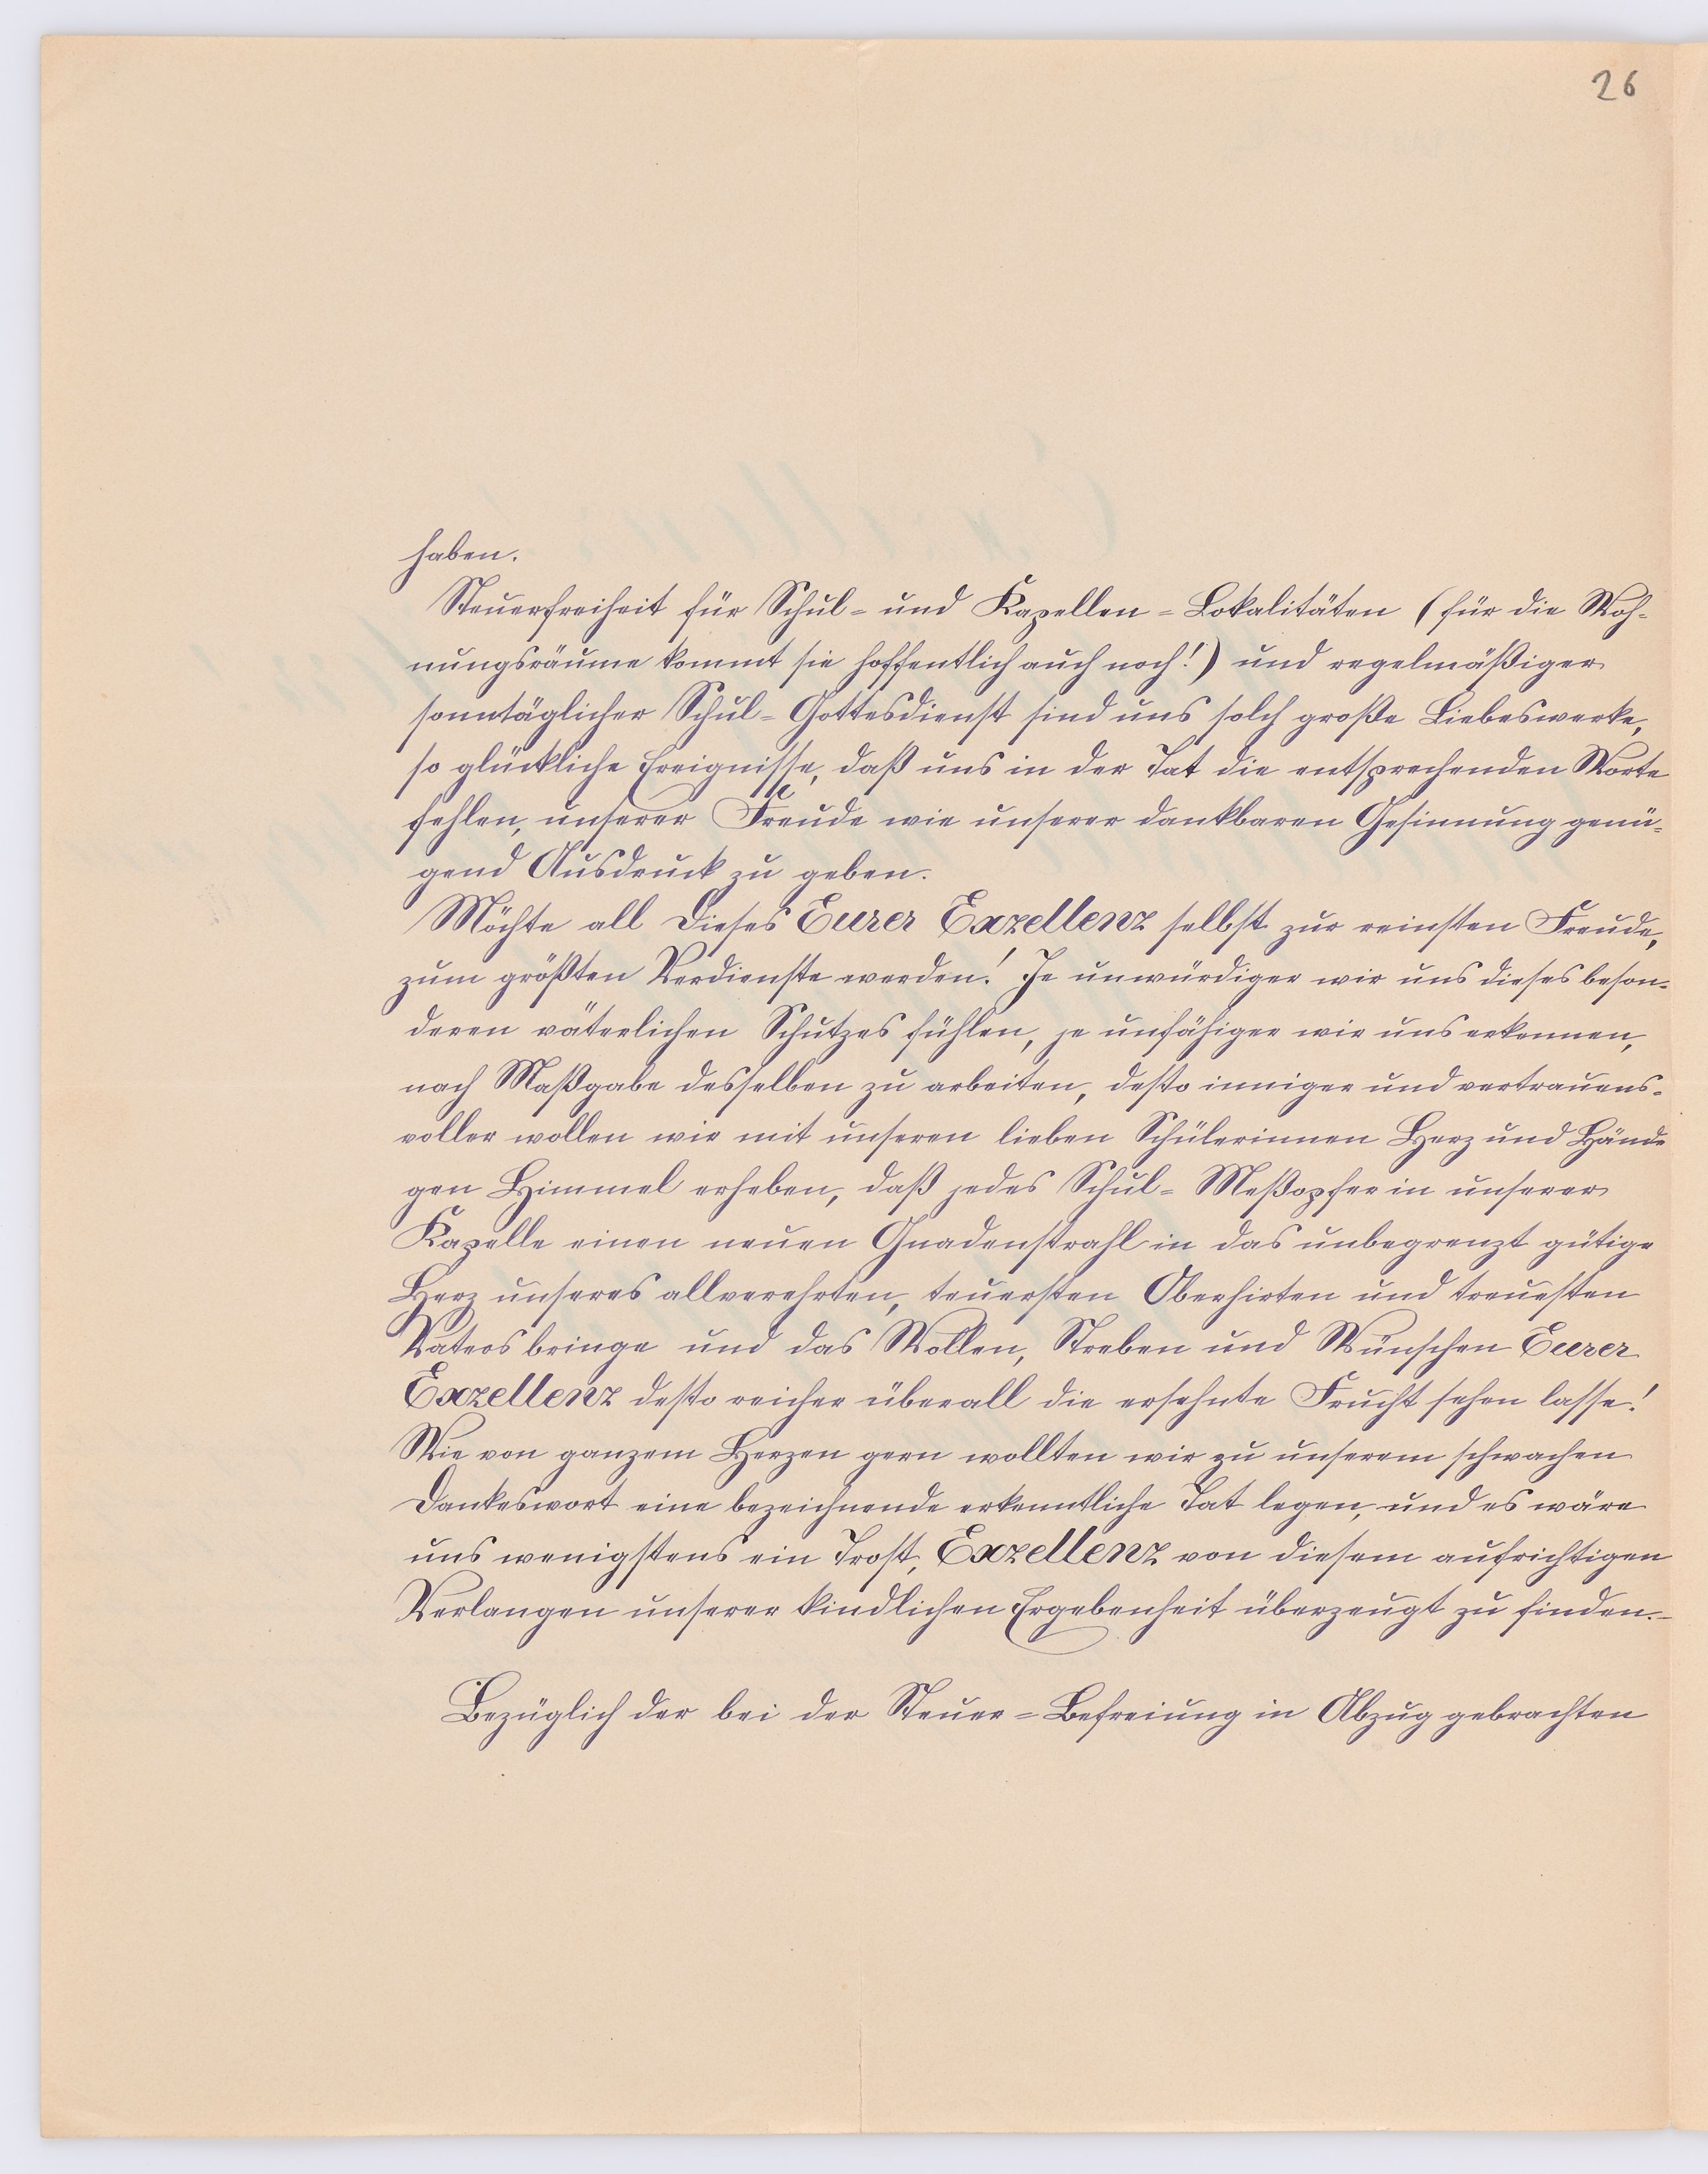 26
haben.
Steuerfreiheit für Schul= und Kapellen=Lokalitäten (für die Woh-
nungsräume kommt sie hoffentlich auch noch!) und regelmäßiger
sonntäglicher Schul=Gottesdienst sind uns solch große Liebeswerke,
so glückliche Ereignisse, daß uns in der Tat die entsprechenden Worte
fehlen, unserer Freude wie unserer dankbaren Gesinnung genü-
gend Ausdruck zu geben.
Möchte all dieses Eurer Exzellenz selbst zur reinsten Freude,
zum größten Verdienste werden! Je unwürdiger wir uns dieses beson-
deren väterlichen Schutzes fühlen, je unfähiger wir uns erkennen,
nach Maßgabe desselben zu arbeiten, desto inniger und vertrauens-
voller wollen wir mit unseren lieben Schülerinnen Herz und Hände
gen Himmel erheben, daß jedes Schul=Meßopfer in unserer
Kapelle einen neuen Gnadenstrahl in das unbegrenzt gütige
Herz unseres allverehrten, teuersten Oberhirten und treuesten
Vaters bringe und das Wollen, Streben und Wünschen Eurer
Exzellenz desto reicher überall die ersehnte Frucht sehen lasse!
Wie von ganzem Herzen gern wollten wir zu unserem schwachen
Dankeswort eine bezeichnende erkenntliche Tat legen, und es wäre
uns wenigstens ein Trost, Exzellenz von diesem aufrichtigen
Verlangen unserer kindlichen Ergebenheit überzeugt zu finden.–
Bezüglich der bei der Steuer=Befreiung in Abzug gebrachten